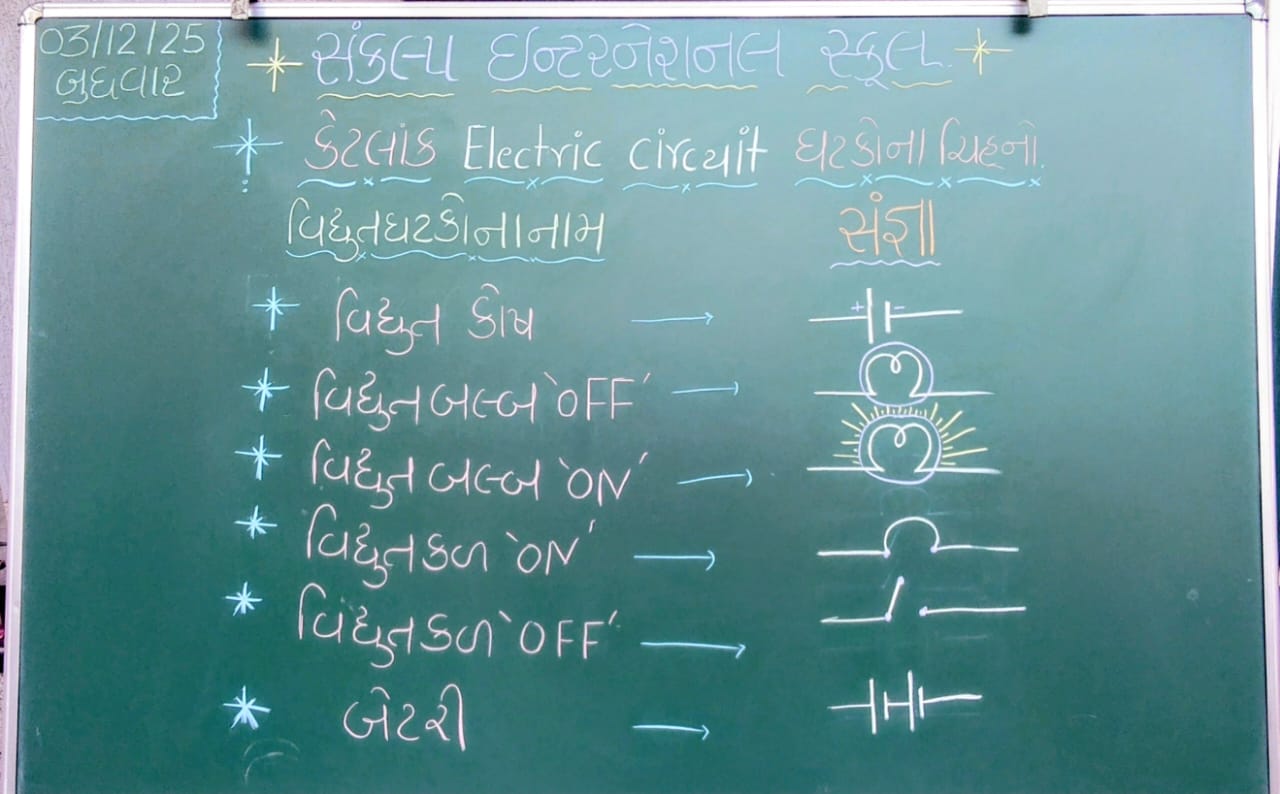 03/12/25
બુધવાર
સંકલ્પ ઇન્ટરનેશનલ સ્કૂલ
કેટલાંક Electric circuit ઘટકોના ચિહનો.
વિદ્યુતઘટકોના નામ સંજ્ઞા
વિદ્યુત કોષ → + -
વિદ્યુત બલ્બ 'OFF' →
વિદ્યુત બલ્બ 'ON' →
વિદ્યુત કળ 'ON' →
વિદ્યુત કળ 'OFF' →
બેટરી →